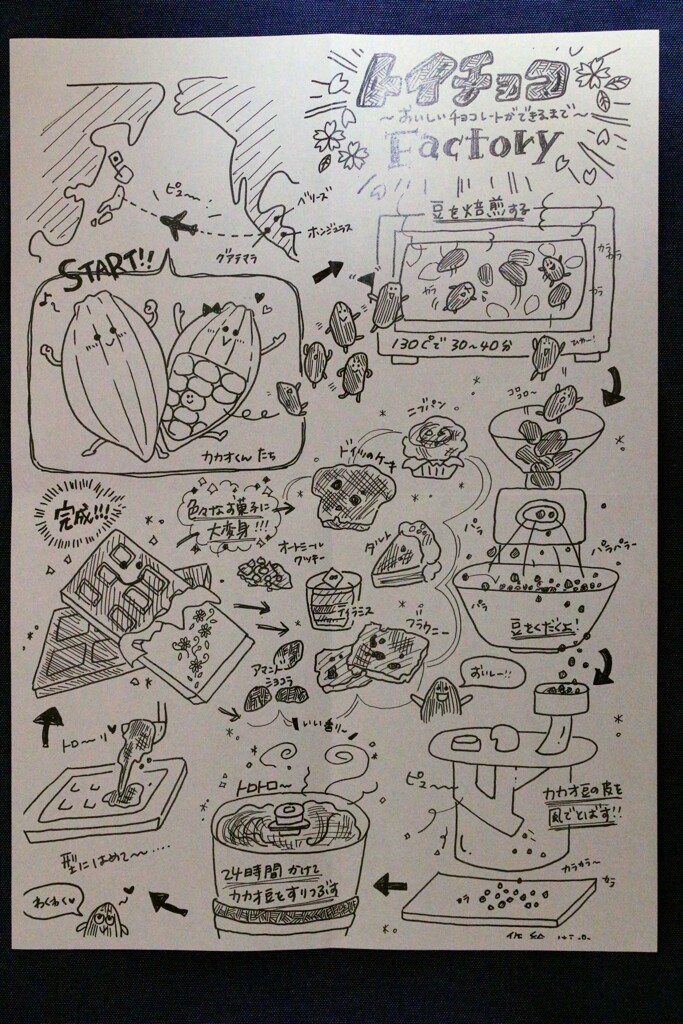 トイチョコ
～おいしいチョコレートができるまで～
Factory
ピュ～
ベリーズ
ホンジュラス
グアテマラ
START!!
カカオくんたち
豆を焙煎する
カラカラ
ガラ
130℃で30～40分
ひゃー!
コロコロ～
パラ
パラパラー
パラ
豆をくだくよ!
ニブパン
ドイツのケーキ
色々なお菓子に
大変身!!!
オートミール
クッキー
タルト
ティラミス
ブラウニー
アマンド
ショコラ
いい香り～
おいしー!!
完成!!!
ピュ～
カカオ豆の皮を
風でとばす!!
カラカラ～
カラ
カラ
トロトロ～
24時間かけて
カカオ豆をすりつぶす
トロ～リ
型にはめて～……
わくわく